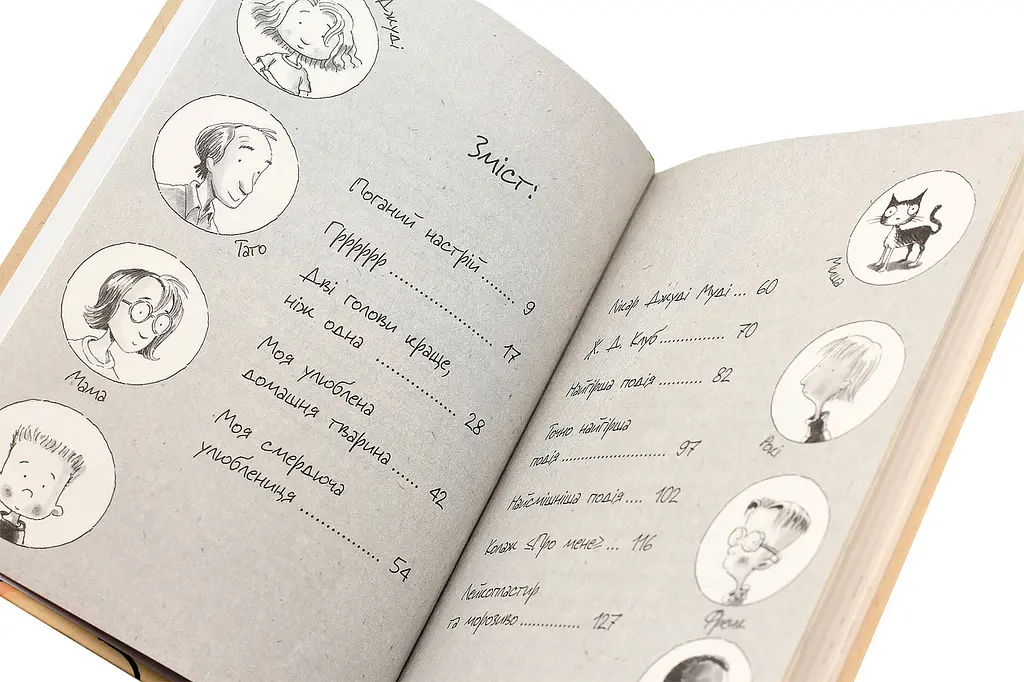 Джуді
Тато
Мама
Зміст:
Поганий настрій...... 9
Грррррр .................. 17
Дві голови краще,
ніж одна .............. 28
Моя улюблена
домашня тварина...... 42
Моя смердюча
улюблениця .............. 54
Лікар Джуді Муді ... 60
Ж. Д. Клуб............... 70
Найгірша подія .......... 82
Точно найгірша
подія ........................ 97
Найсмішніша подія .... 102
Колаж «Про мене»... 116
Лейкопластир
та морозиво .............. 127
Миша
Рокі
Френк